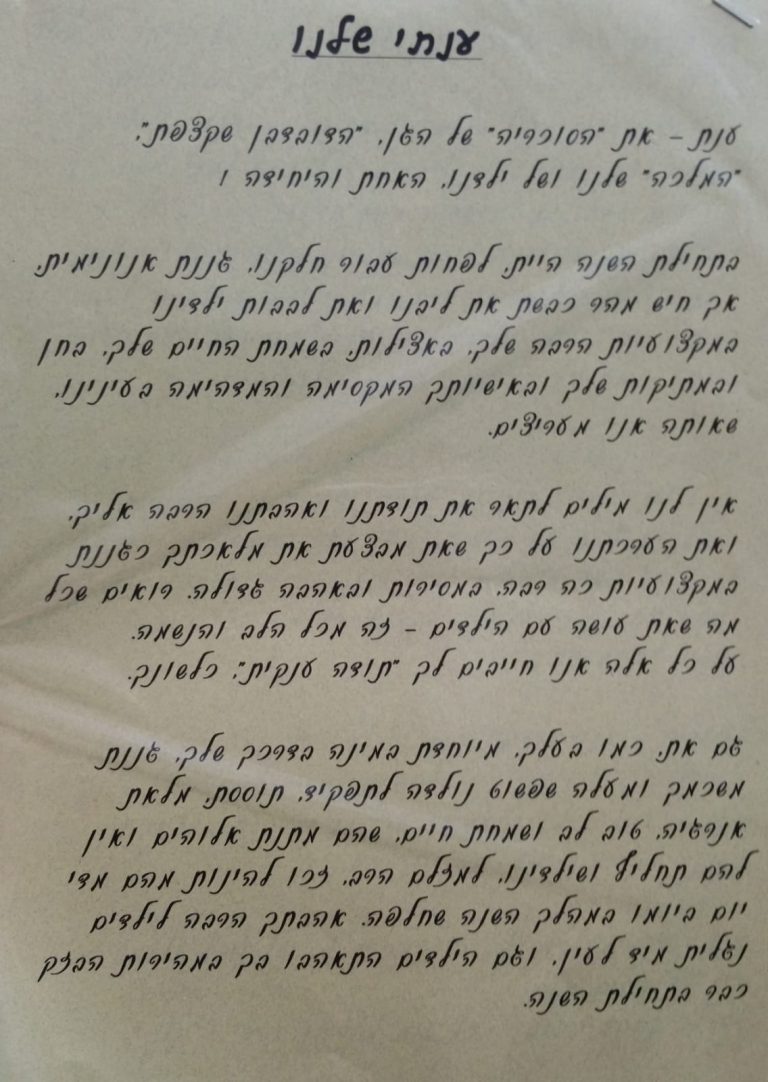 ענתי שלנו
ענת – את "הסוכריה" של הגן, "הדובדבן שקצפת",
"המלכה" שלנו ושל ילדנו, האחת והיחידה !
בתחילת השנה היית, לפחות עבור חלקנו, גננת אנונימית,
אך חיש מהר כבשת את ליבנו ואת לבבות ילדינו
במקצועיות הרבה שלך, באצילות, בשמחת החיים שלך, בחן
ובמתיקות שלך ובאישיותך המקסימה והמדהימה בעינינו,
שאותה אנו מעריצים.
אין לנו מילים לתאר את תודתנו ואהבתנו הרבה אליך,
ואת הערכתנו על כך שאת מבצעת את מלאכתך כגננת
במקצועיות כה רבה, במסירות ובאהבה גדולה. רואים שכל
מה שאת עושה עם הילדים – זה מכל הלב והנשמה.
על כל אלה אנו חייבים לך "תודה ענקית", כלשונך.
גם את, כמו בעלך, מיוחדת במינה בדרכך שלך, גננת
משכמך ומעלה שפשוט נולדה לתפקיד, תוססת, מלאת
אנרגיה, טוב לב ושמחת חיים, שהם מתנת אלוהים ואין
להם תחליף ושילדינו, למזלם הרב, זכו להינות מהם מדי
יום ביומו במהלך השנה שחלפה. אהבתך הרבה לילדים
נגלית מיד לעין, וגם הילדים התאהבו בך במהירות הבזק
כבר בתחילת השנה.